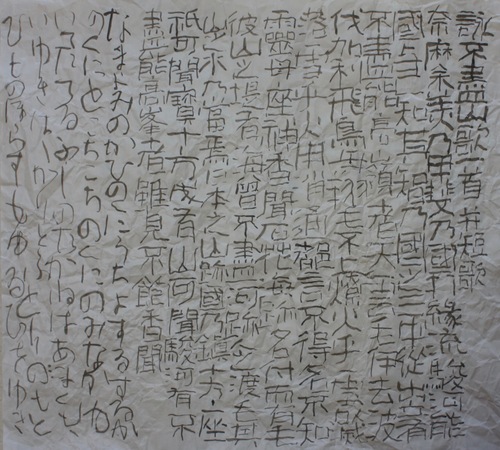 詠不盡山歌一首并短歌
奈麻余美乃甲斐乃國打縁流駿河能
國与己知其智乃國之三中従出立有
不盡能高嶺者天雲毛伊去波
伐加利飛鳥母翔毛不上燎火乎雪以滅
落雪乎火用消通都言不得名不知
靈母座神香聞石花海跡名付而有毛
彼山之堤有海曽不盡河跡人乃渡毛其
山之水乃當焉日本之山跡國乃鎮十方座
祇可聞寳十方成有山可聞駿河有不
盡能高峯者雖見不飽香聞
なまよみのかひのくにうちよするするが
のくにとこちごちのくにのみなかゆ
いでたてるふじのたかねはあまくも
いゆきはばかりとぶとりのもと
ひものぼらずもゆるひをゆき